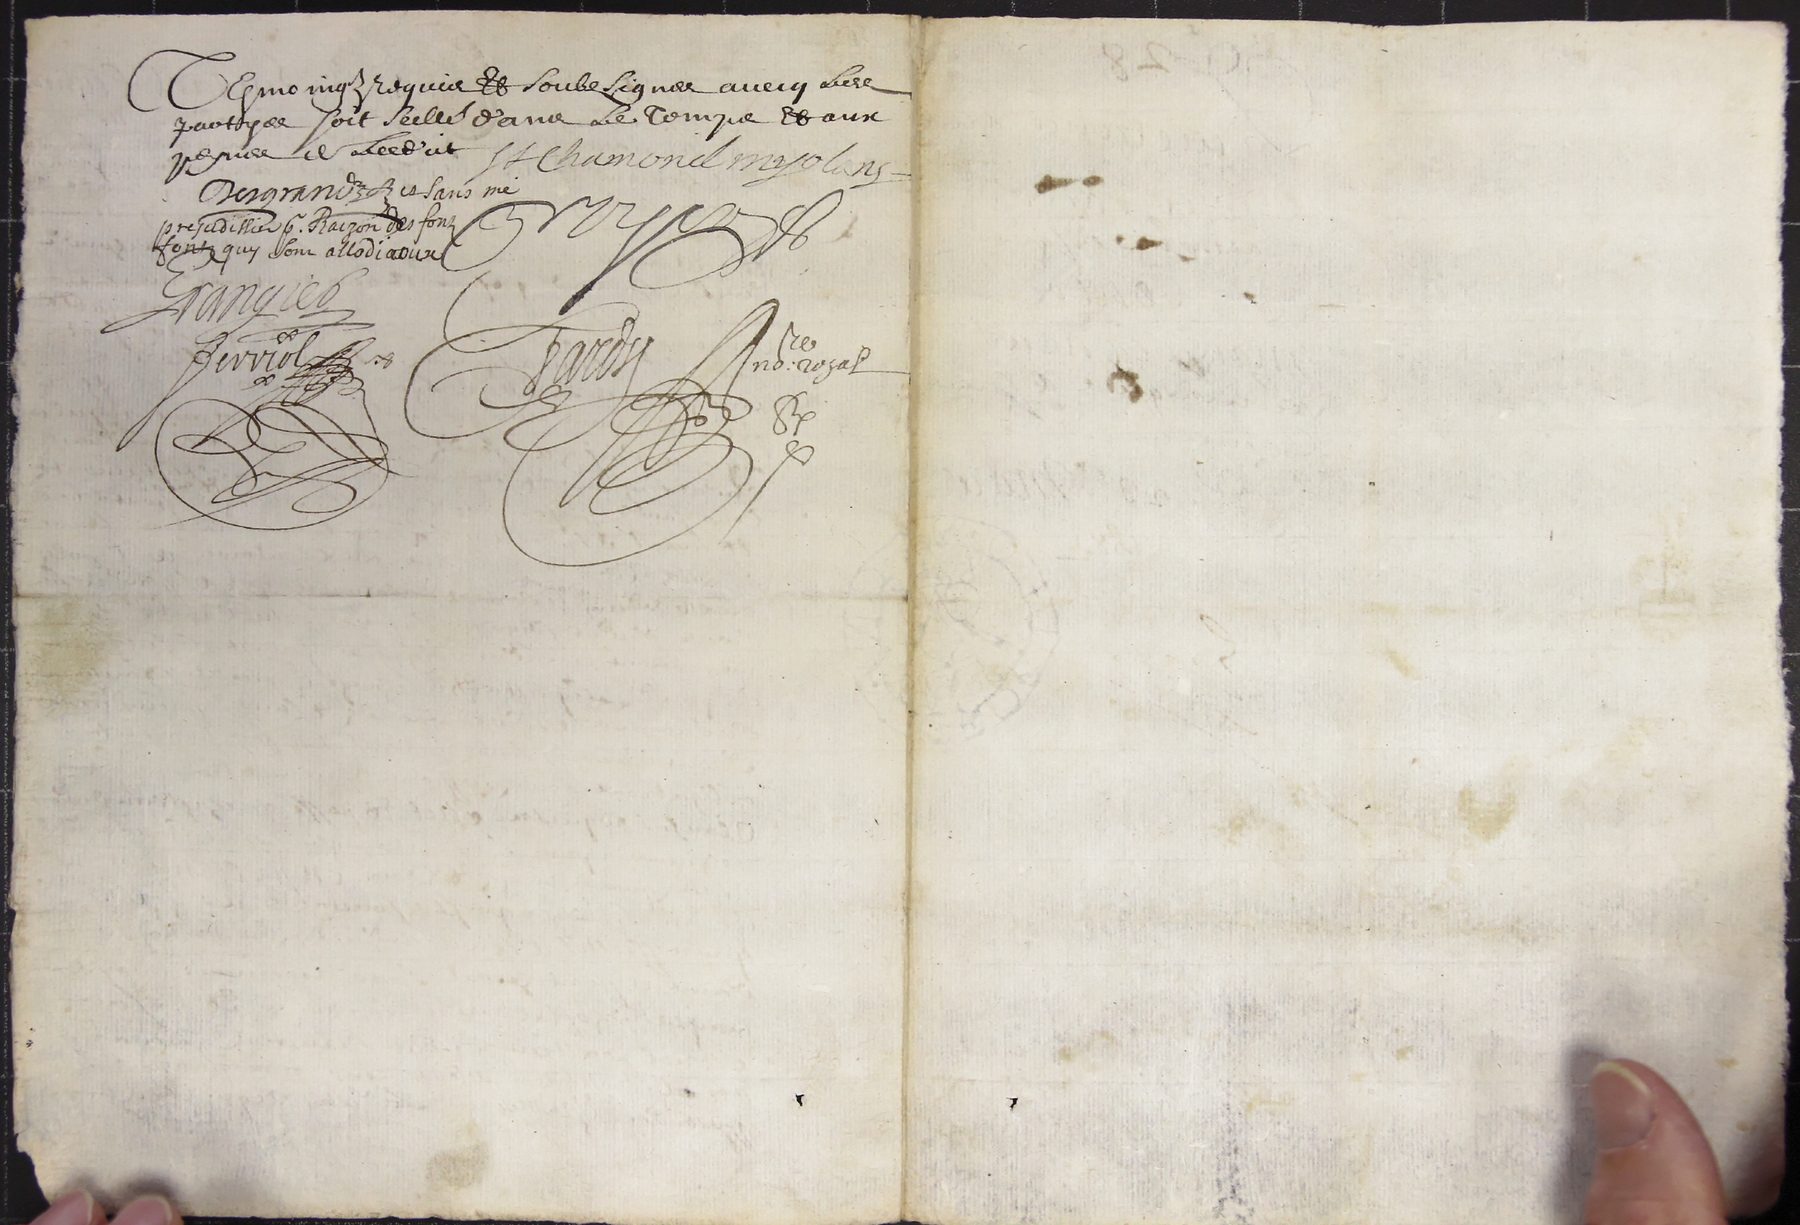 Tesmoingz requis et soubz signes avecq les
partyes soit seelle dans le temps et aux
peynes de leedit St Chamond myolans
Desgrandz et sans me
prejudissier p. Raizon des fonz
fontz quy sont allodiaoux
Grangier
Ferriol
Tardy
no.re royal